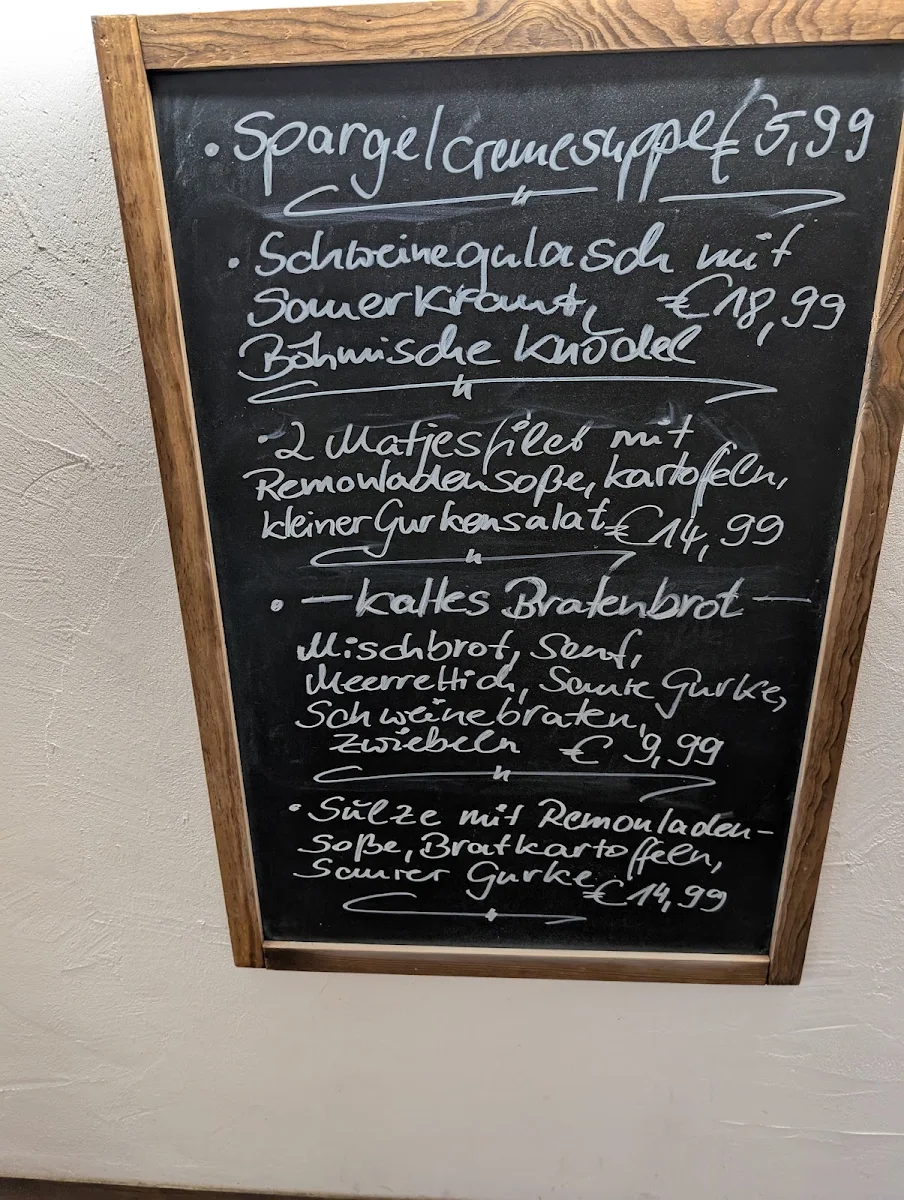 • Spargelcremesuppe € 5,99
• Schweinegulasch mit
Sauerkraut, € 18,99
Böhmische Knödel
• 2 Matjesfilet mit
Remouladensoße, Kartoffeln,
kleiner Gurkensalat € 14,99
• — kaltes Bratenbrot —
Mischbrot, Senf,
Meerrettich, Saure Gurke,
Schweinebraten,
Zwiebeln € 9,99
• Sülze mit Remouladen-
soße, Bratkartoffeln,
Saurer Gurke € 14,99